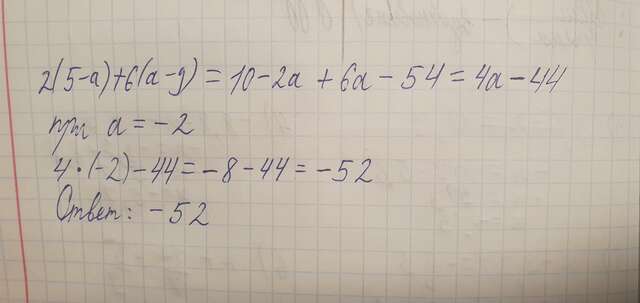 2(5-a)+6(a-9)=10-2a+6a-54=4a-44
при a=-2
4·(-2)-44=-8-44=-52
Ответ: -52